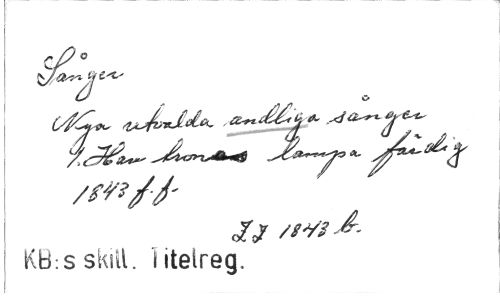 Sånger
Nya utvalda andliga sånger
1. Hav lampa färdig
1843 f.f.
1843 b.
KB:s skill. Titelreg.